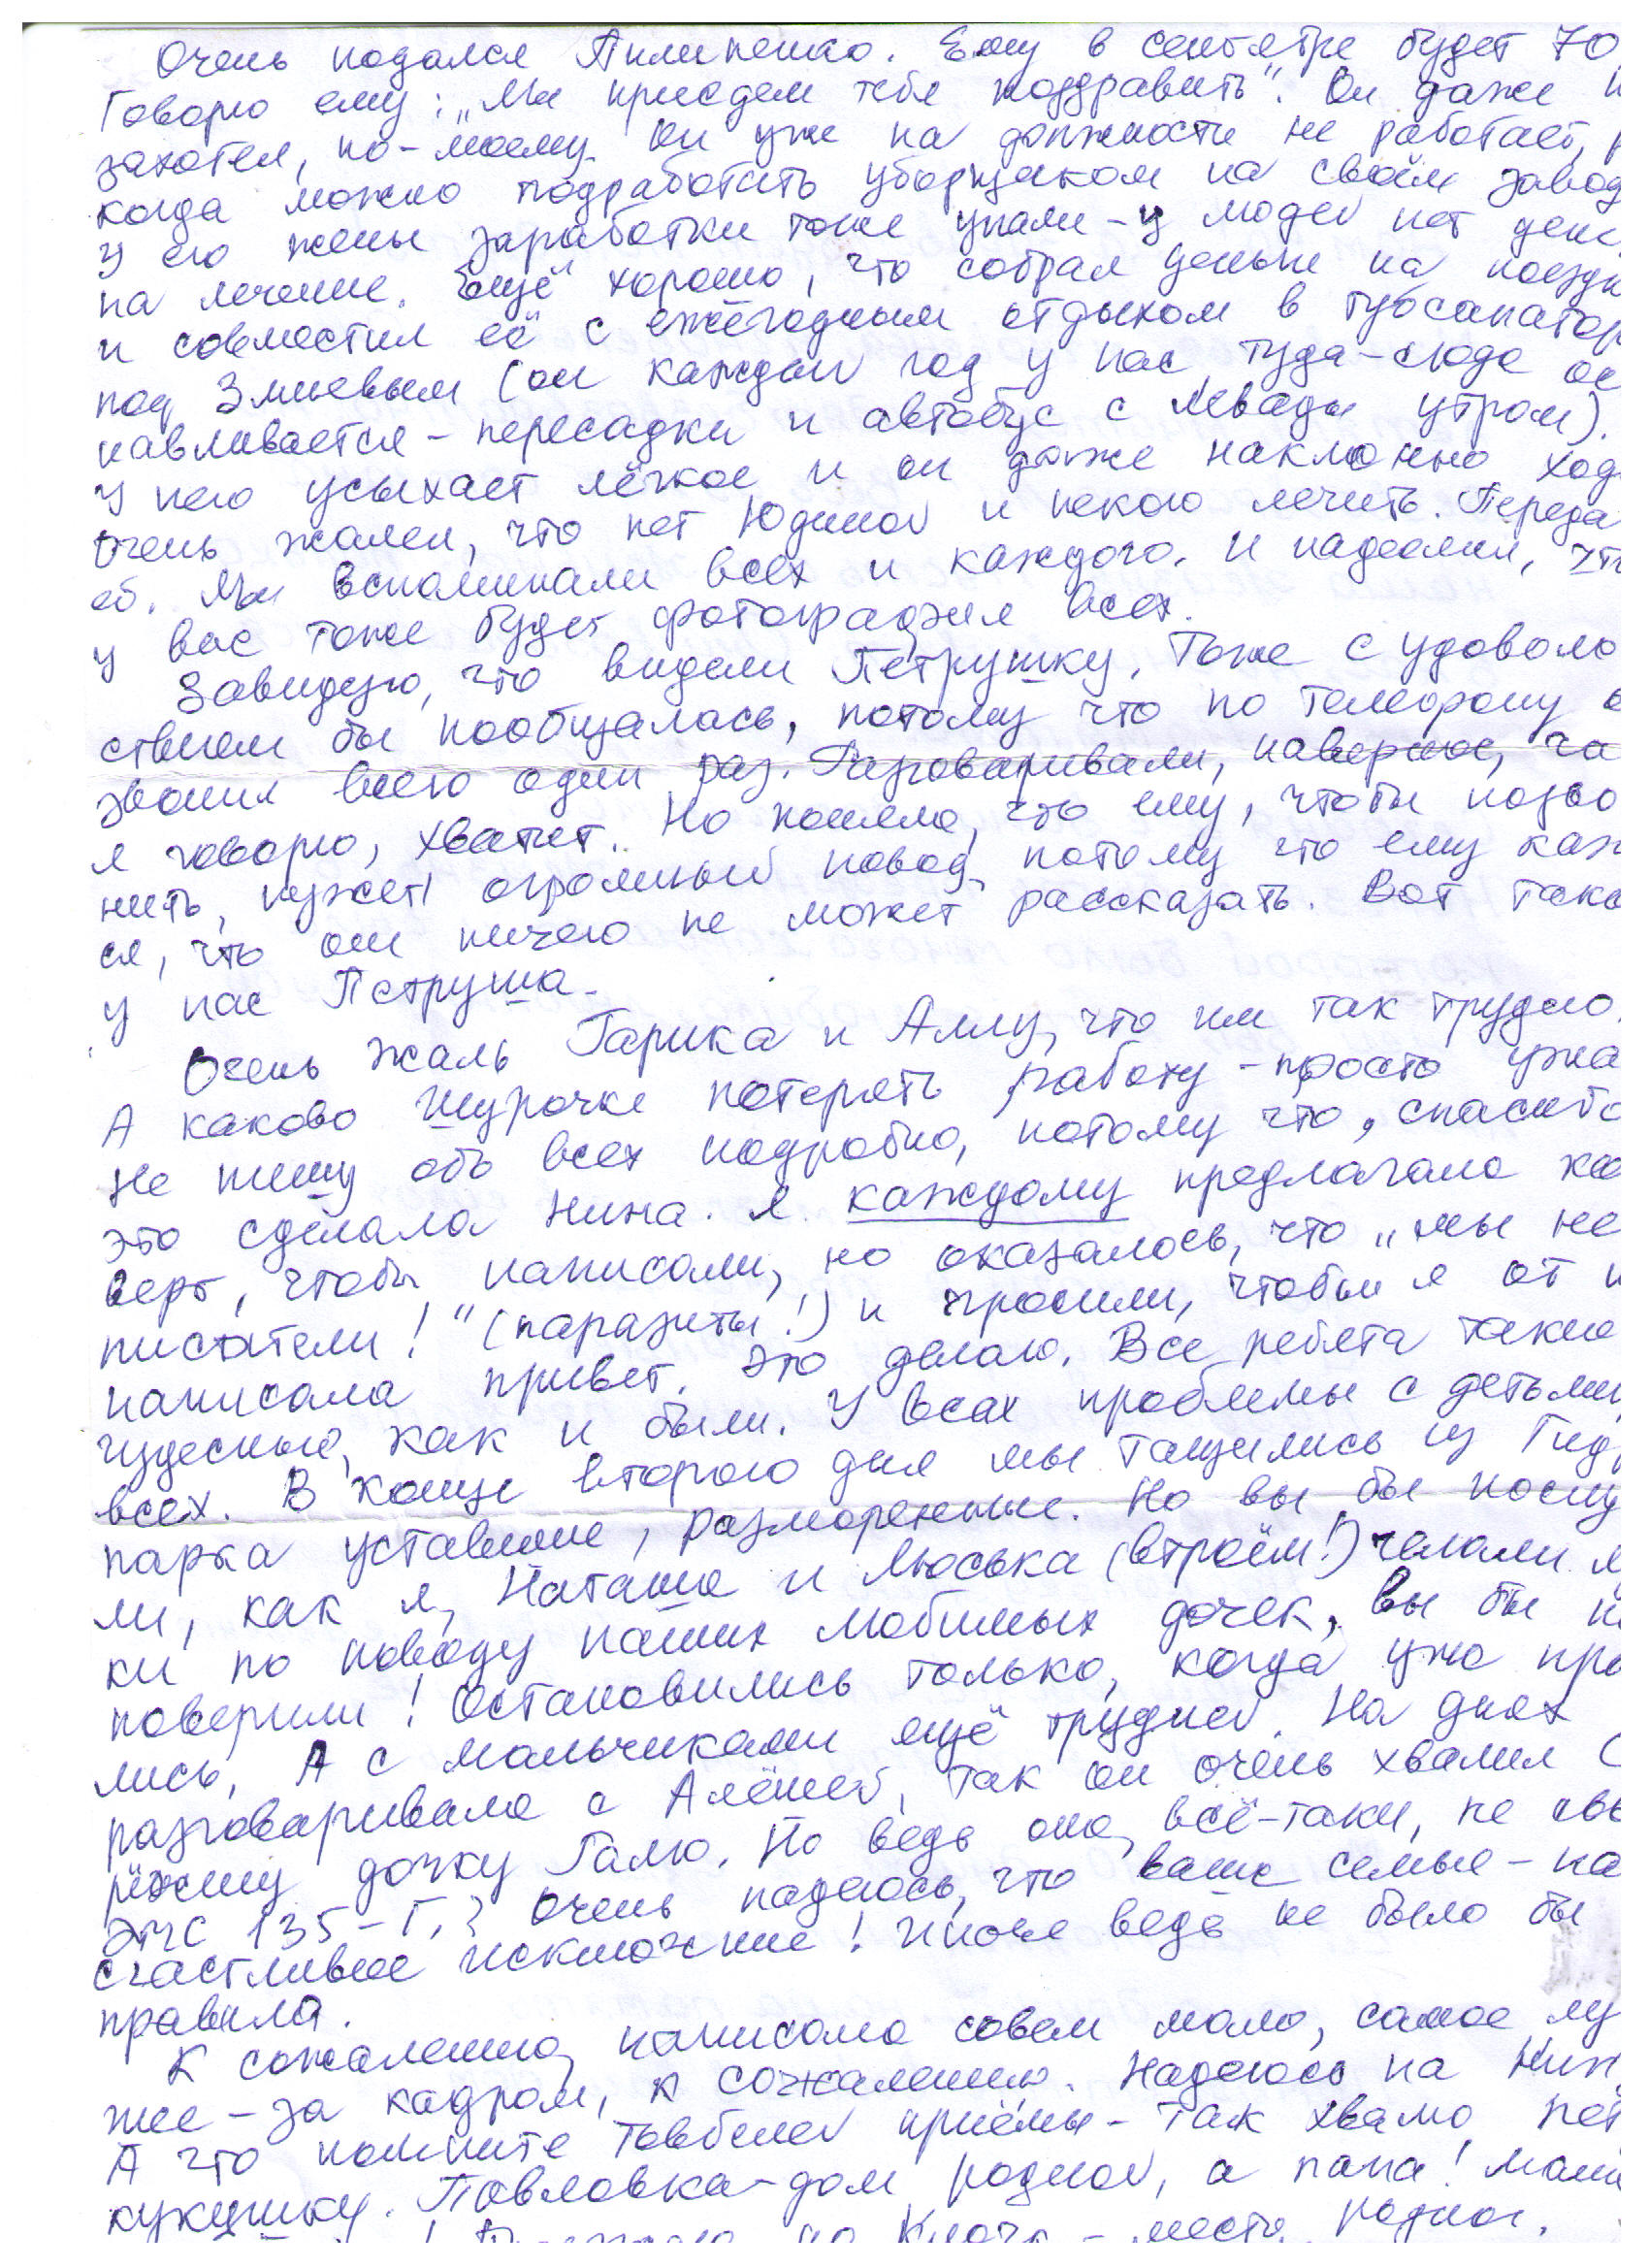 Очень подался Пилипенко. Ему в сентябре будет 70
Говорю ему: „Мы приедем тебя поздравить". Он даже н
захотел, по-моему. Он уже на должности не работает, р
когда можно подработать уборщиком на своём завод
У его жены заработки тоже упали - у людей нет ден
на лечение. Ещё хорошо, что собрал деньги на поездк
и совместил её с ежегодным отдыхом в тубсанатор
под Змиевым (он каждый год у нас туда-сюда ос
навливается - пересадки и автобус с Левады утром).
У него усыхает лёгкое и он даже наклонно ход
Очень жалел, что нет Юдиной и некого лечить. Переда
об. Мы вспоминали всех и каждого. И надеемся, что
у вас тоже будет фотография всех.
Завидую, что видели Петрушку. Тоже с удоволь
ствием бы пообщалась, потому что по телефону о
звонил всего один раз. Разговаривали, наверное, ча
я говорю, хватит. Но поняла, что ему, чтобы позво
нить, нужен огромный повод, потому что ему каж
ся, что он ничего не может рассказать. Вот тако
у нас Петруша.
Очень жаль Гарика и Аллу, что им так трудно.
А каково Шурочке потерять работу - просто ужа
Не пишу обо всех подробно, потому что, спасибо
это сделала Нина. Я каждому предлагала кон
верт, чтобы написали, но оказалось, что „мы не
писатели!" (паразиты!) и просили, чтобы я от н
написала привет. Это делаю. Все ребята такие
чудесные, как и были. У всех проблемы с детьми,
всех. В конце второго дня мы тащились из Гидр
парка уставшие, разморенные. Но вы бы послу
ли, как я, Наташа и Люська (втроём!) чесали я
ки по поводу наших любимых дочек, вы бы н
поверили! Остановились только, когда уже про
лись. А с мальчиками ещё трудней. На днях
разговаривала с Алёшей, так он очень хвалил С
рёжину дочку Галю. Но ведь она, всё-таки, не све
135-Г.? Очень надеюсь, что ваши семьи - на
счастливое исключение! Иначе ведь не было бы
правила.
К сожалению, написала совсем мало, самое лу
шее - за кадром, к сожалению. Надеюсь на Нин
А что помните приёмы - так хвалю Пет
кукушку. Павловка - дом родной, а папа! мама
место родное.